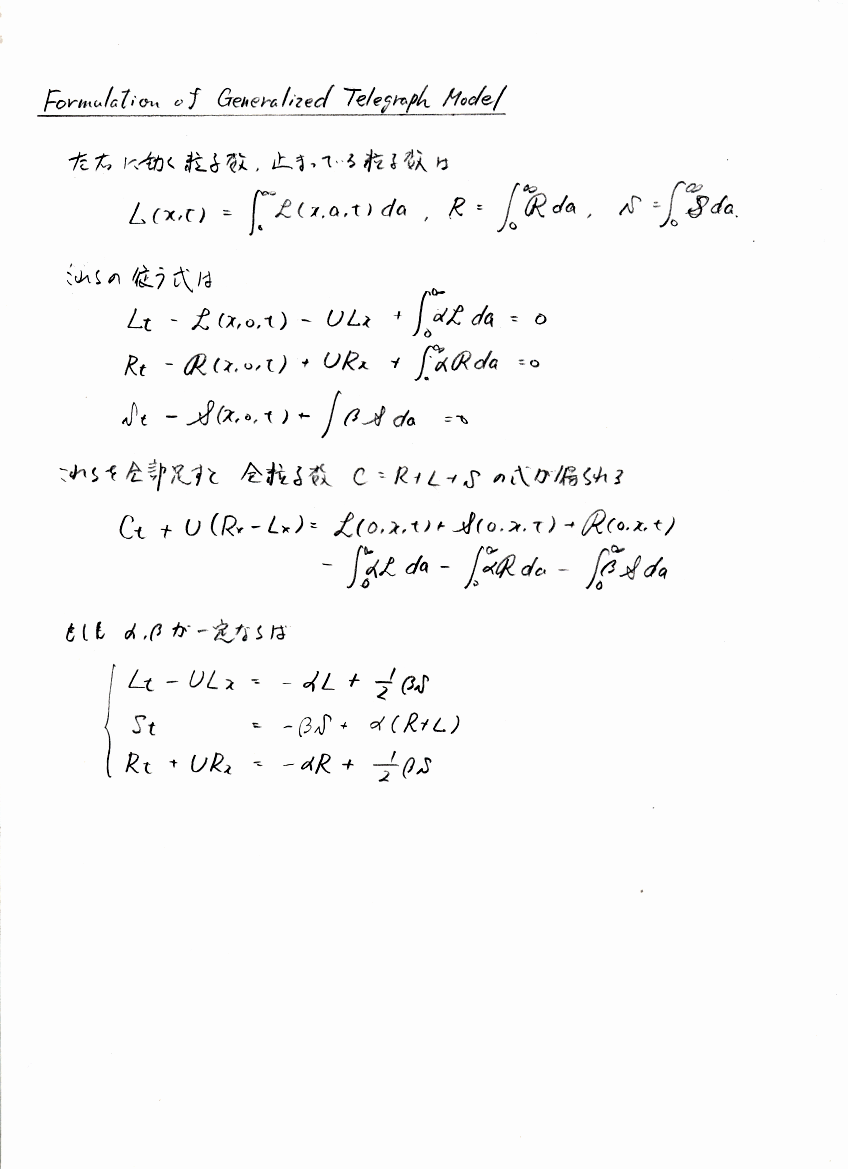 Formulation of Generalized Telegraph Model
左右に動く粒子数, 止まっている粒子数は
L(x,t) = ∫_0^∞ ℒ(x,a,t) da , R = ∫_0^∞ ℛ da , S = ∫_0^∞ 𝒮 da.
これらの従う式は
Lt - ℒ(x,0,t) - ULx + ∫_0^∞ αℒ da = 0
Rt - ℛ(x,0,t) + URx + ∫_0^∞ αℛ da = 0
St - 𝒮(x,0,t) + ∫ β𝒮 da = 0
これらを全部足すと 全粒子数 C = R+L+S の式が得られる
Ct + U(Rx-Lx) = ℒ(0,x,t) + 𝒮(0,x,t) + ℛ(0,x,t)
- ∫_0^∞ αℒ da - ∫_0^∞ αℛ da - ∫_0^∞ β𝒮 da
もしも α,β が一定ならば
Lt - ULx = - αL + 1/2 βS
St = - βS + α(R+L)
Rt + URx = - αR + 1/2 βS